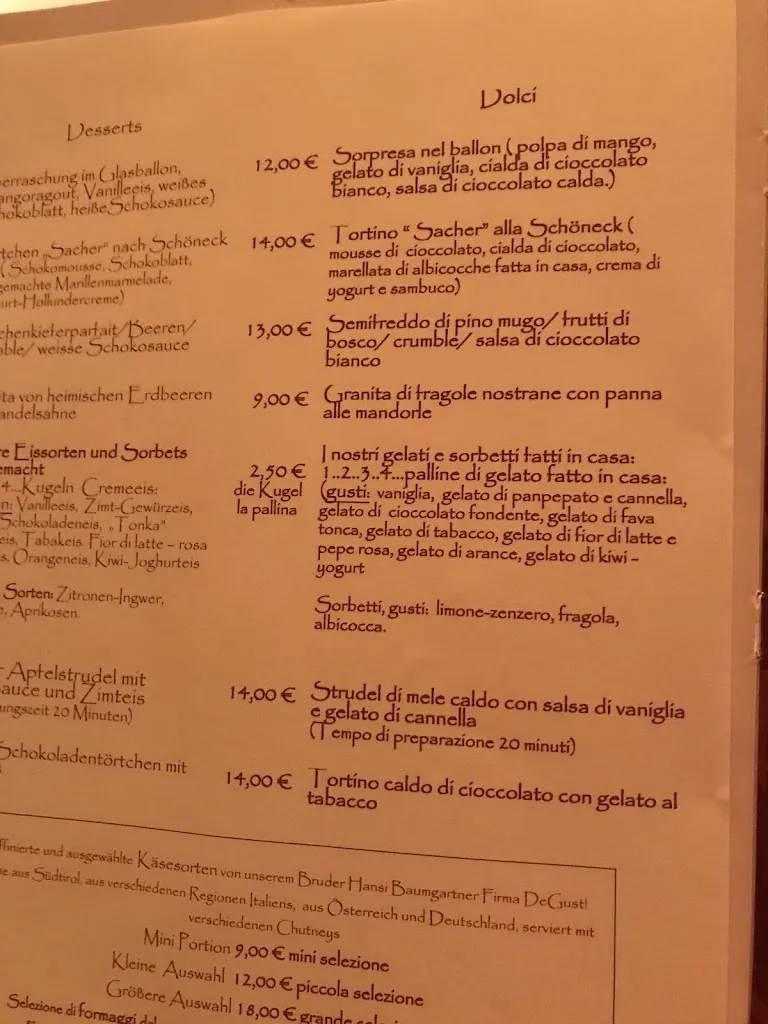 Desserts
Dolci
erraschung im Glasballon,
angoragout, Vanilleeis, weißes
hokoblatt, heiße Schokosauce)
12,00 €
Sorpresa nel ballon ( polpa di mango,
gelato di vaniglia, cialda di cioccolato
bianco, salsa di cioccolato calda.)
tchen „Sacher" nach Schöneck
( Schokomousse, Schokoblatt,
gemachte Marillenmarmelade,
urt-Hollundercreme)
14,00 €
Tortino “ Sacher” alla Schöneck (
mousse di cioccolato, cialda di cioccolato,
marellata di albicocche fatta in casa, crema di
yogurt e sambuco)
chenkieferparfait/Beeren/
ble/ weisse Schokosauce
13,00 €
Semifreddo di pino mugo/ frutti di
bosco/ crumble/ salsa di cioccolato
bianco
ta von heimischen Erdbeeren
andelsahne
9,00 €
Granita di fragole nostrane con panna
alle mandorle
re Eissorten und Sorbets
emacht
4...Kugeln Cremeeis:
n: Vanilleeis, Zimt-Gewürzeis,
Schokoladeneis, „Tonka"
eis, Tabakeis. Fior di latte – rosa
s, Orangeneis, Kiwi-Joghurteis
2,50 €
die Kugel
la pallina
I nostri gelati e sorbetti fatti in casa:
1..2..3..4...palline di gelato fatto in casa:
(gusti: vaniglia, gelato di panpepato e cannella,
gelato di cioccolato fondente, gelato di fava
tonca, gelato di tabacco, gelato di fior di latte e
pepe rosa, gelato di arance, gelato di kiwi –
yogurt
Sorten: Zitronen-Ingwer,
e, Aprikosen.
Sorbetti, gusti: limone-zenzero, fragola,
albicocca.
r Apfelstrudel mit
auce und Zimteis
ungszeit 20 Minuten)
14,00 €
Strudel di mele caldo con salsa di vaniglia
e gelato di cannella
(Tempo di preparazione 20 minuti)
Schokoladentörtchen mit
s
14,00 €
Tortino caldo di cioccolato con gelato al
tabacco
ffinierte und ausgewählte Käsesorten von unserem Bruder Hansi Baumgartner Firma DeGust!
se aus Südtirol, aus verschiedenen Regionen Italiens, aus Österreich und Deutschland, serviert mit
verschiedenen Chutneys
Mini Portion 9,00 € mini selezione
Kleine Auswahl 12,00 € piccola selezione
Größere Auswahl 18,00 € grande
Selezione di formaggi del